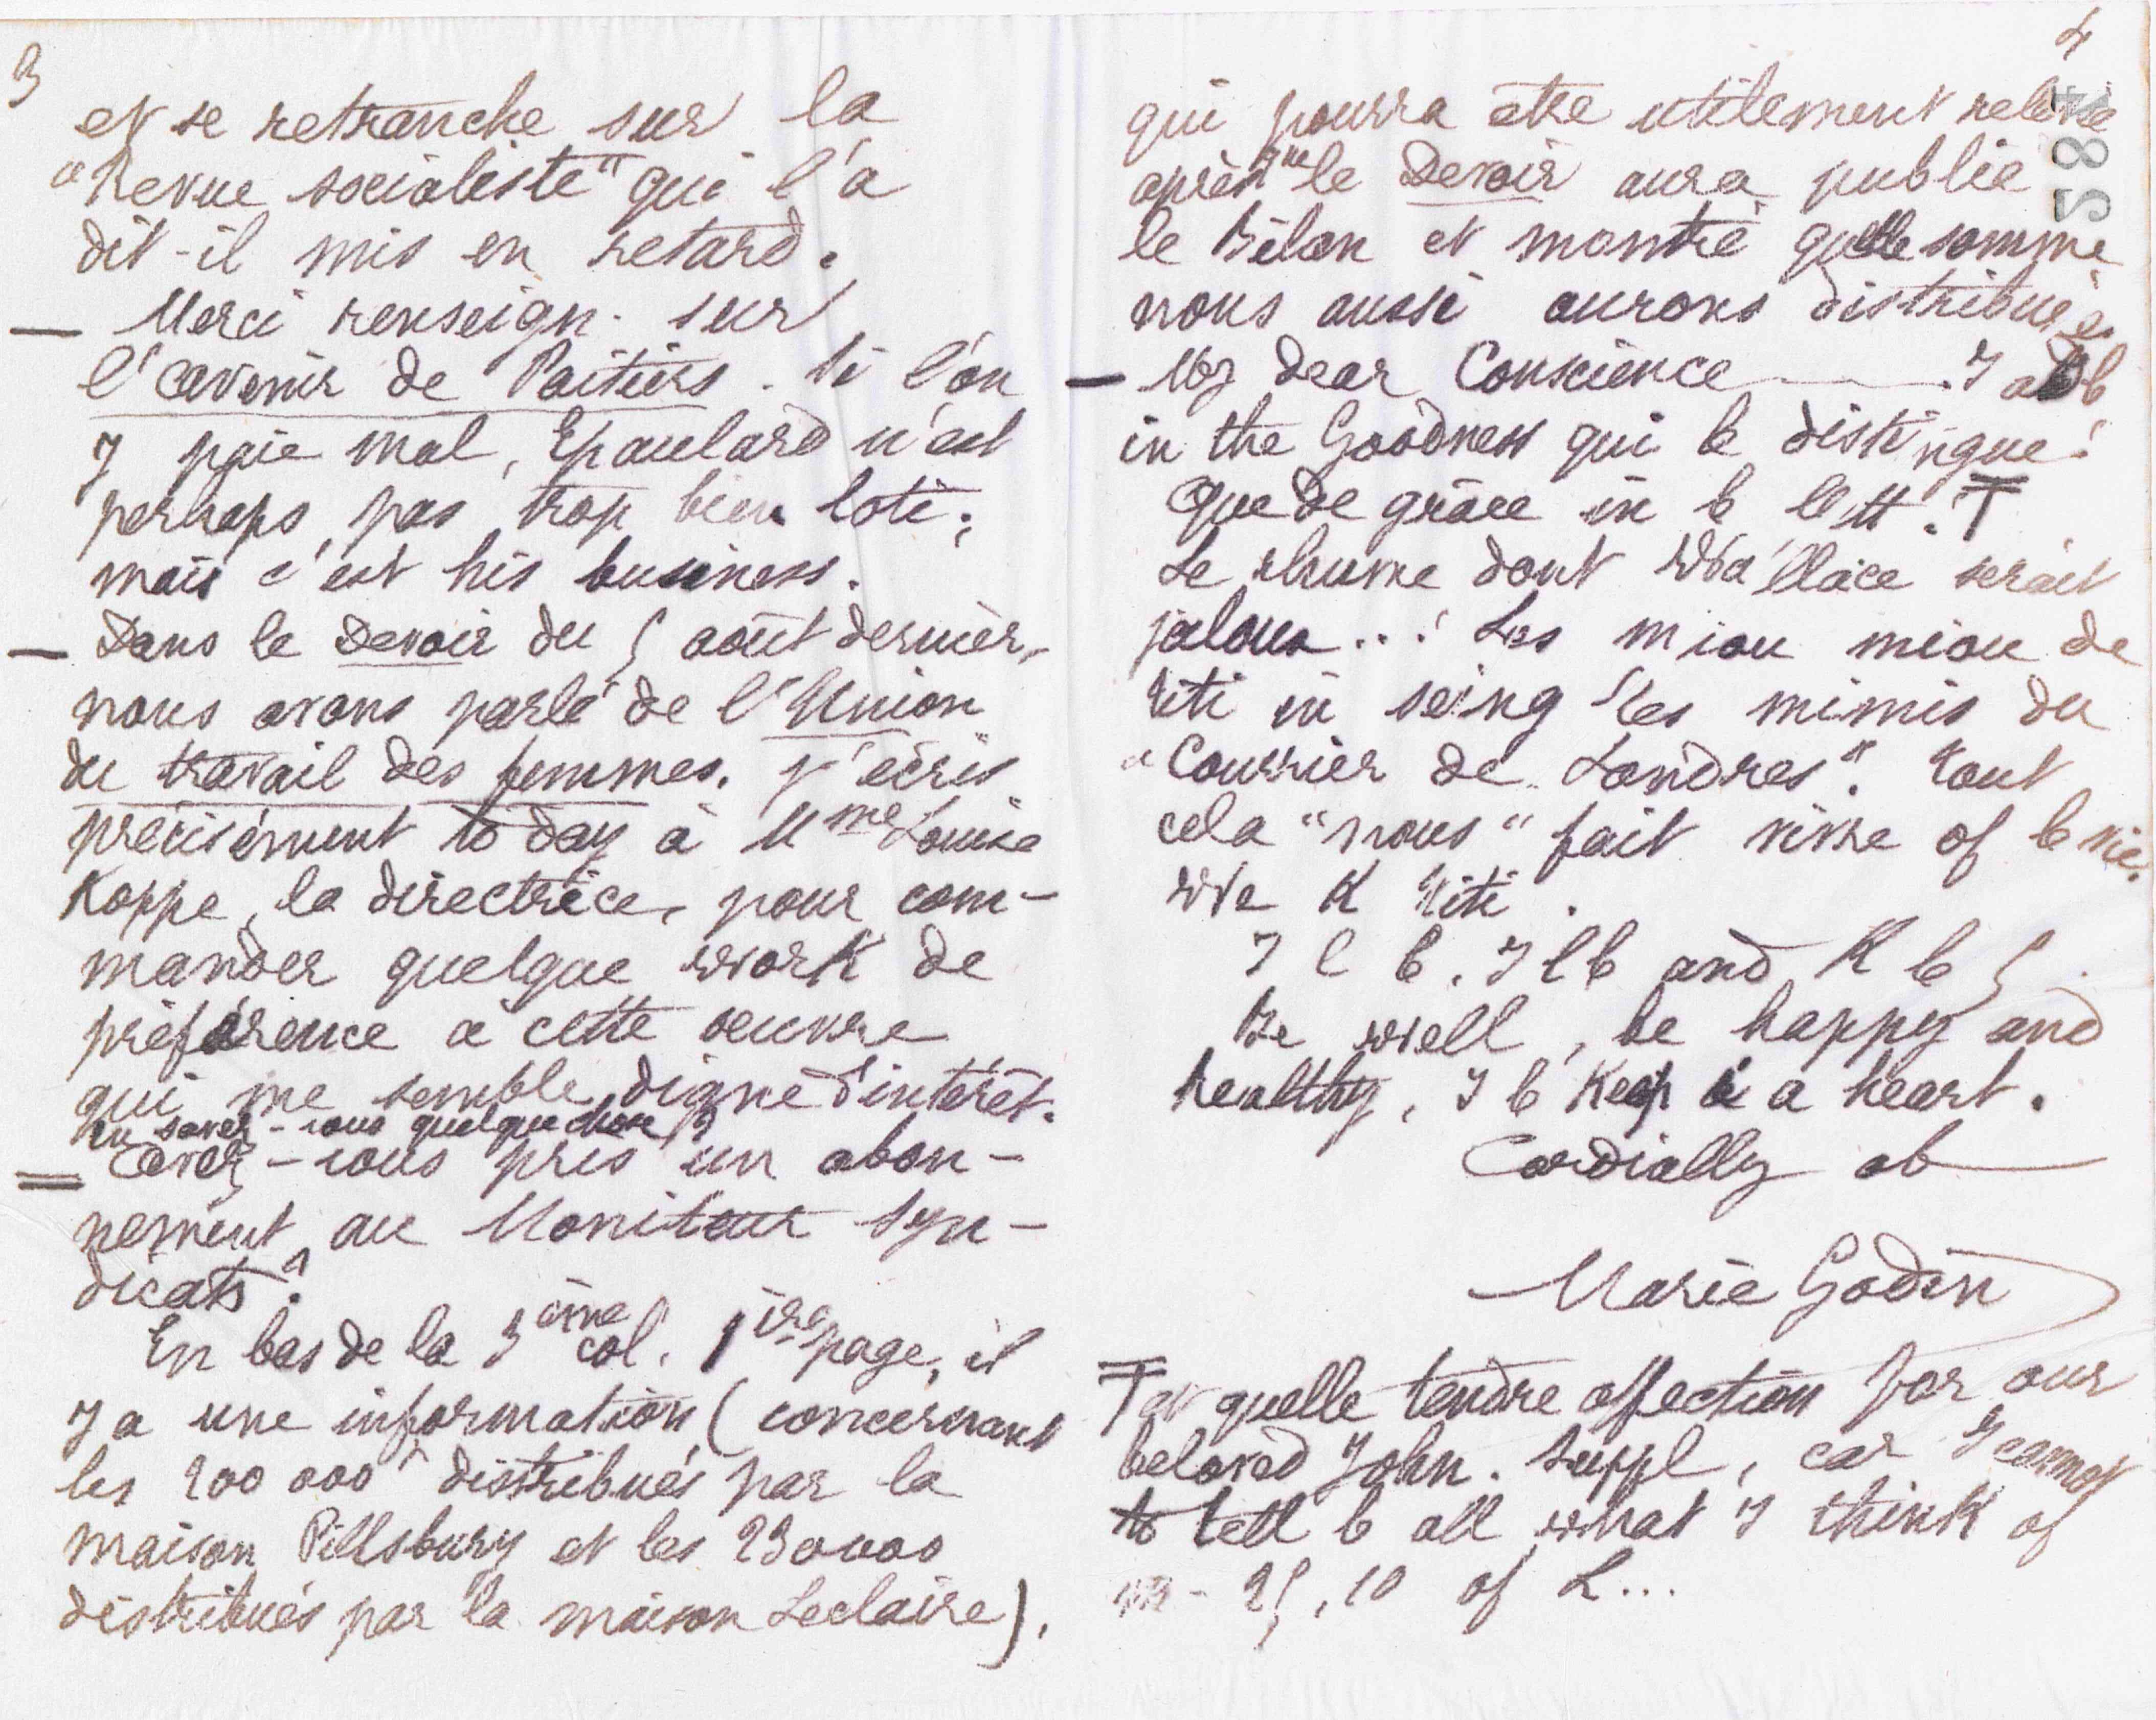 3
et se retranche sur la
"Revue socialiste" qui l'a
dit-il mis en retard.
— Merci renseign. sur
l'avenir de Poitiers. Si l'on
y paie mal, Epaulard n'est
perhaps pas trop bien loti;
mais c'est his business.
— Dans le Devoir du août dernier,
nous avons parlé de l'Union
du travail des femmes. J'écris
précisément to day à Mme Louise
Koppe, la directrice, pour com-
mander quelque work de
préférence à cette oeuvre
qui me semble digne d'intérêt.
En savez-vous quelque chose?
= Avez-vous pris un abon-
nement au Moniteur Syn-
dicats?
En bas de la 3ème col. 1ère page, il
y a une information (concernant
les 200 000 f distribués par la
maison Pillsbury et les 230000
distribués par la maison Leclaire).
4
485
qui pourra être utilement relevée
après que le Devoir aura publié
le Bilan et montré quelle somme
nous aussi aurons distribuée.
— My dear Conscience. I ab
in the Goodness qui b distingue!
Que de grâce in b lett. T
Le rhume dont Wallace serait
jaloux...! Les miou miou de
Titi in seing les mimis du
"Courrier de Londres". Tout
cela "nous" fait vivre of b vie.
We K Titi.
I l b. I l b and K b
Be well, be happy and
healthy, I b keep à a heart.
Cordially ab
Marie Godin
T et quelle tendre affection for our
beloved John. Suppl, car I cannot
to tell b all what I think of
10 of L...